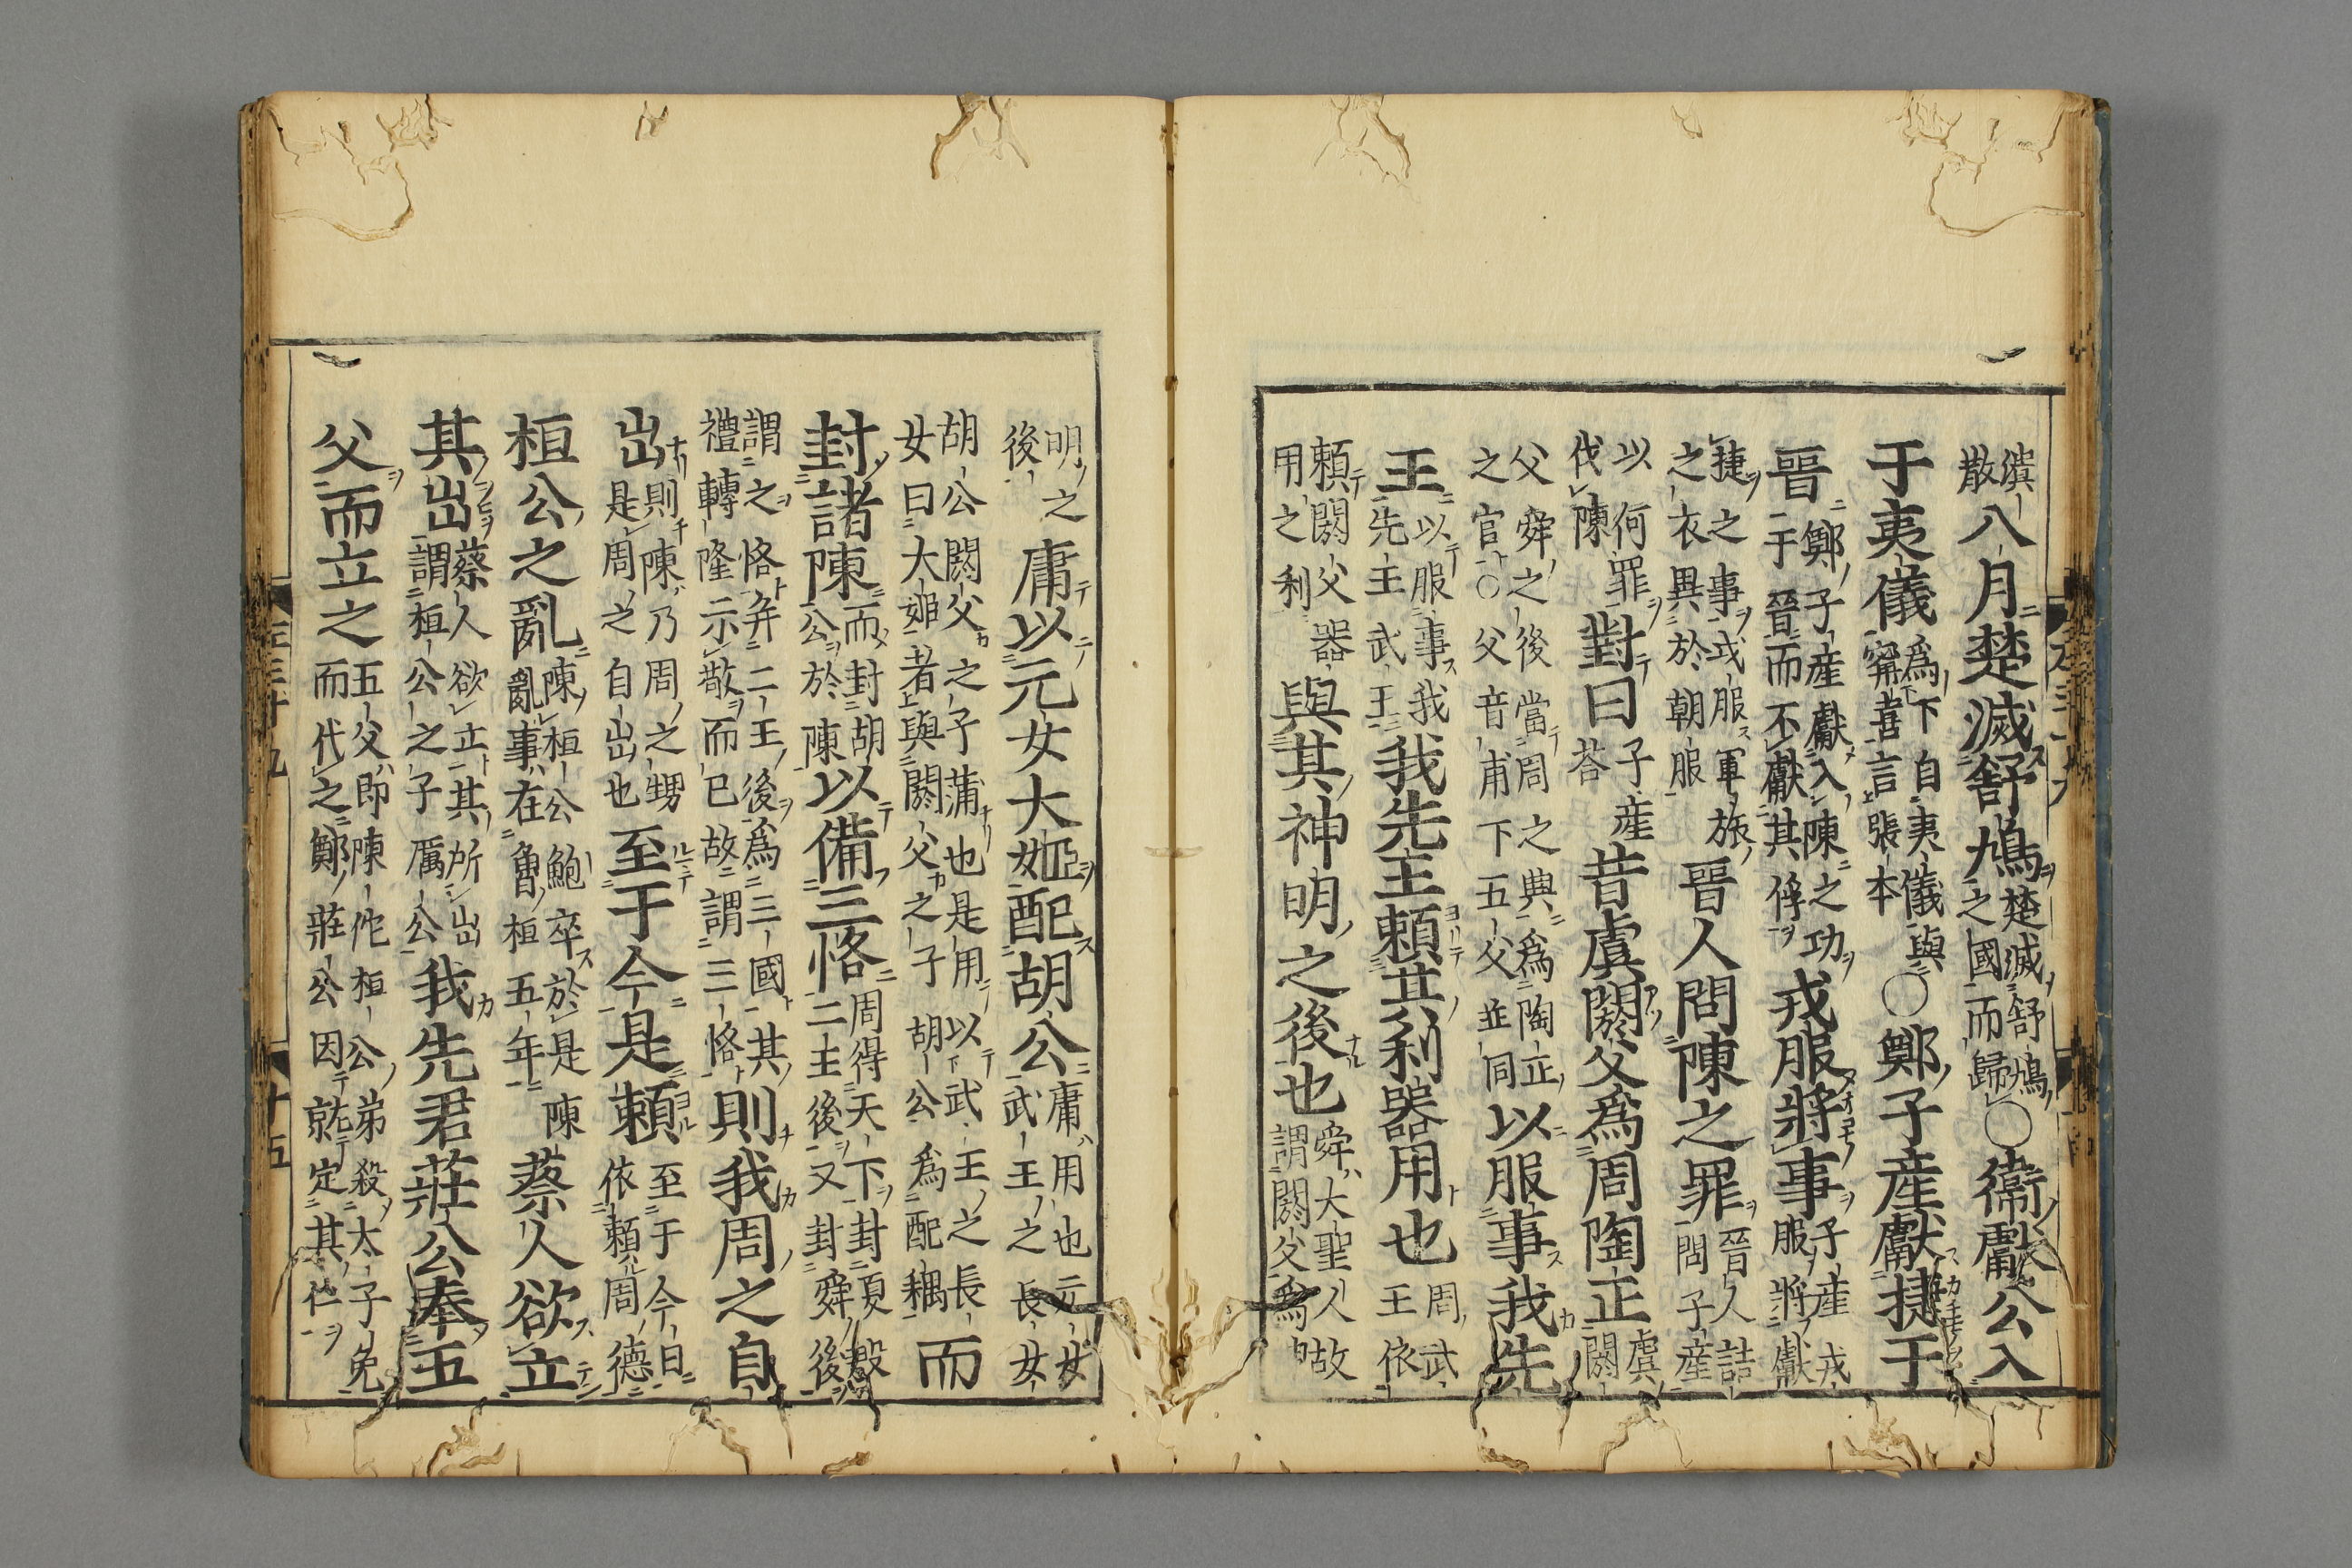 潰散八月楚滅舒鳩楚滅舒鳩之國而歸〇衞獻公入
于夷儀爲下自夷儀與甯喜言張本〇鄭子產獻捷于
晉鄭子產獻入陳之功于晉而不獻其俘戎服將事子產戎服將獻
捷之事戎服軍旅之衣異於朝服晉人問陳之罪晉人詰問子產
以何罪伐陳對曰子產荅昔虞閼父爲周陶正虞閼
父舜之後當周之興爲陶正之官〇父音甫下五父並同以服事我先
王以服事我先王武王我先王賴其利器用也周武王依
賴閼父器用之利與其神明之後也舜大聖人故謂閼父爲神
明之後庸以元女大姬配胡公庸用也元女武王之長女
胡公閼父之子蒲也是用以武王之長女曰大姬者與閼父之子胡公爲配耦而
封諸陳而封胡公於陳以備三恪周得天下封夏殷二王後又封舜後
謂之恪并二王後爲三國其禮轉隆示敬而已故謂三恪則我周之自
出則陳乃周之甥是周之自出也至于今是賴至于今日依賴周德
桓公之亂陳桓公鮑卒於是陳亂事在魯桓五年蔡人欲立
其出蔡人欲立其所出謂桓公之子厲公我先君莊公奉五
父而立之五父即陳佗桓公弟殺太子免而代之鄭莊公因就定其位